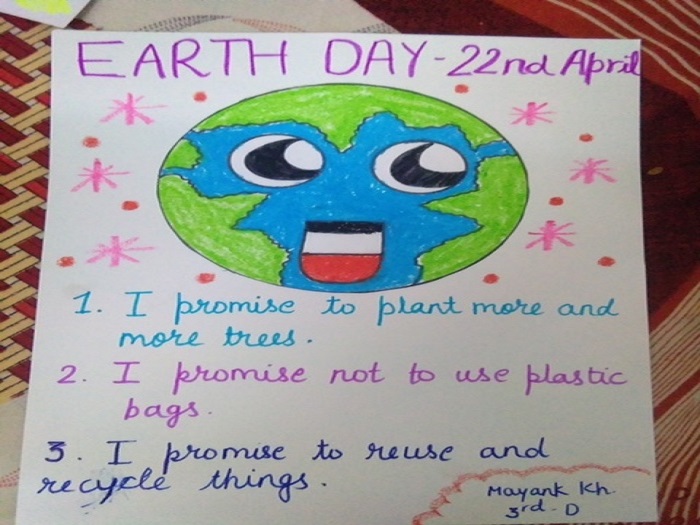 EARTH DAY - 22nd April
1. I promise to plant more and
more trees.
2. I promise not to use plastic
bags.
3. I promise to reuse and
recycle things.
Mayank Kh.
3rd - D